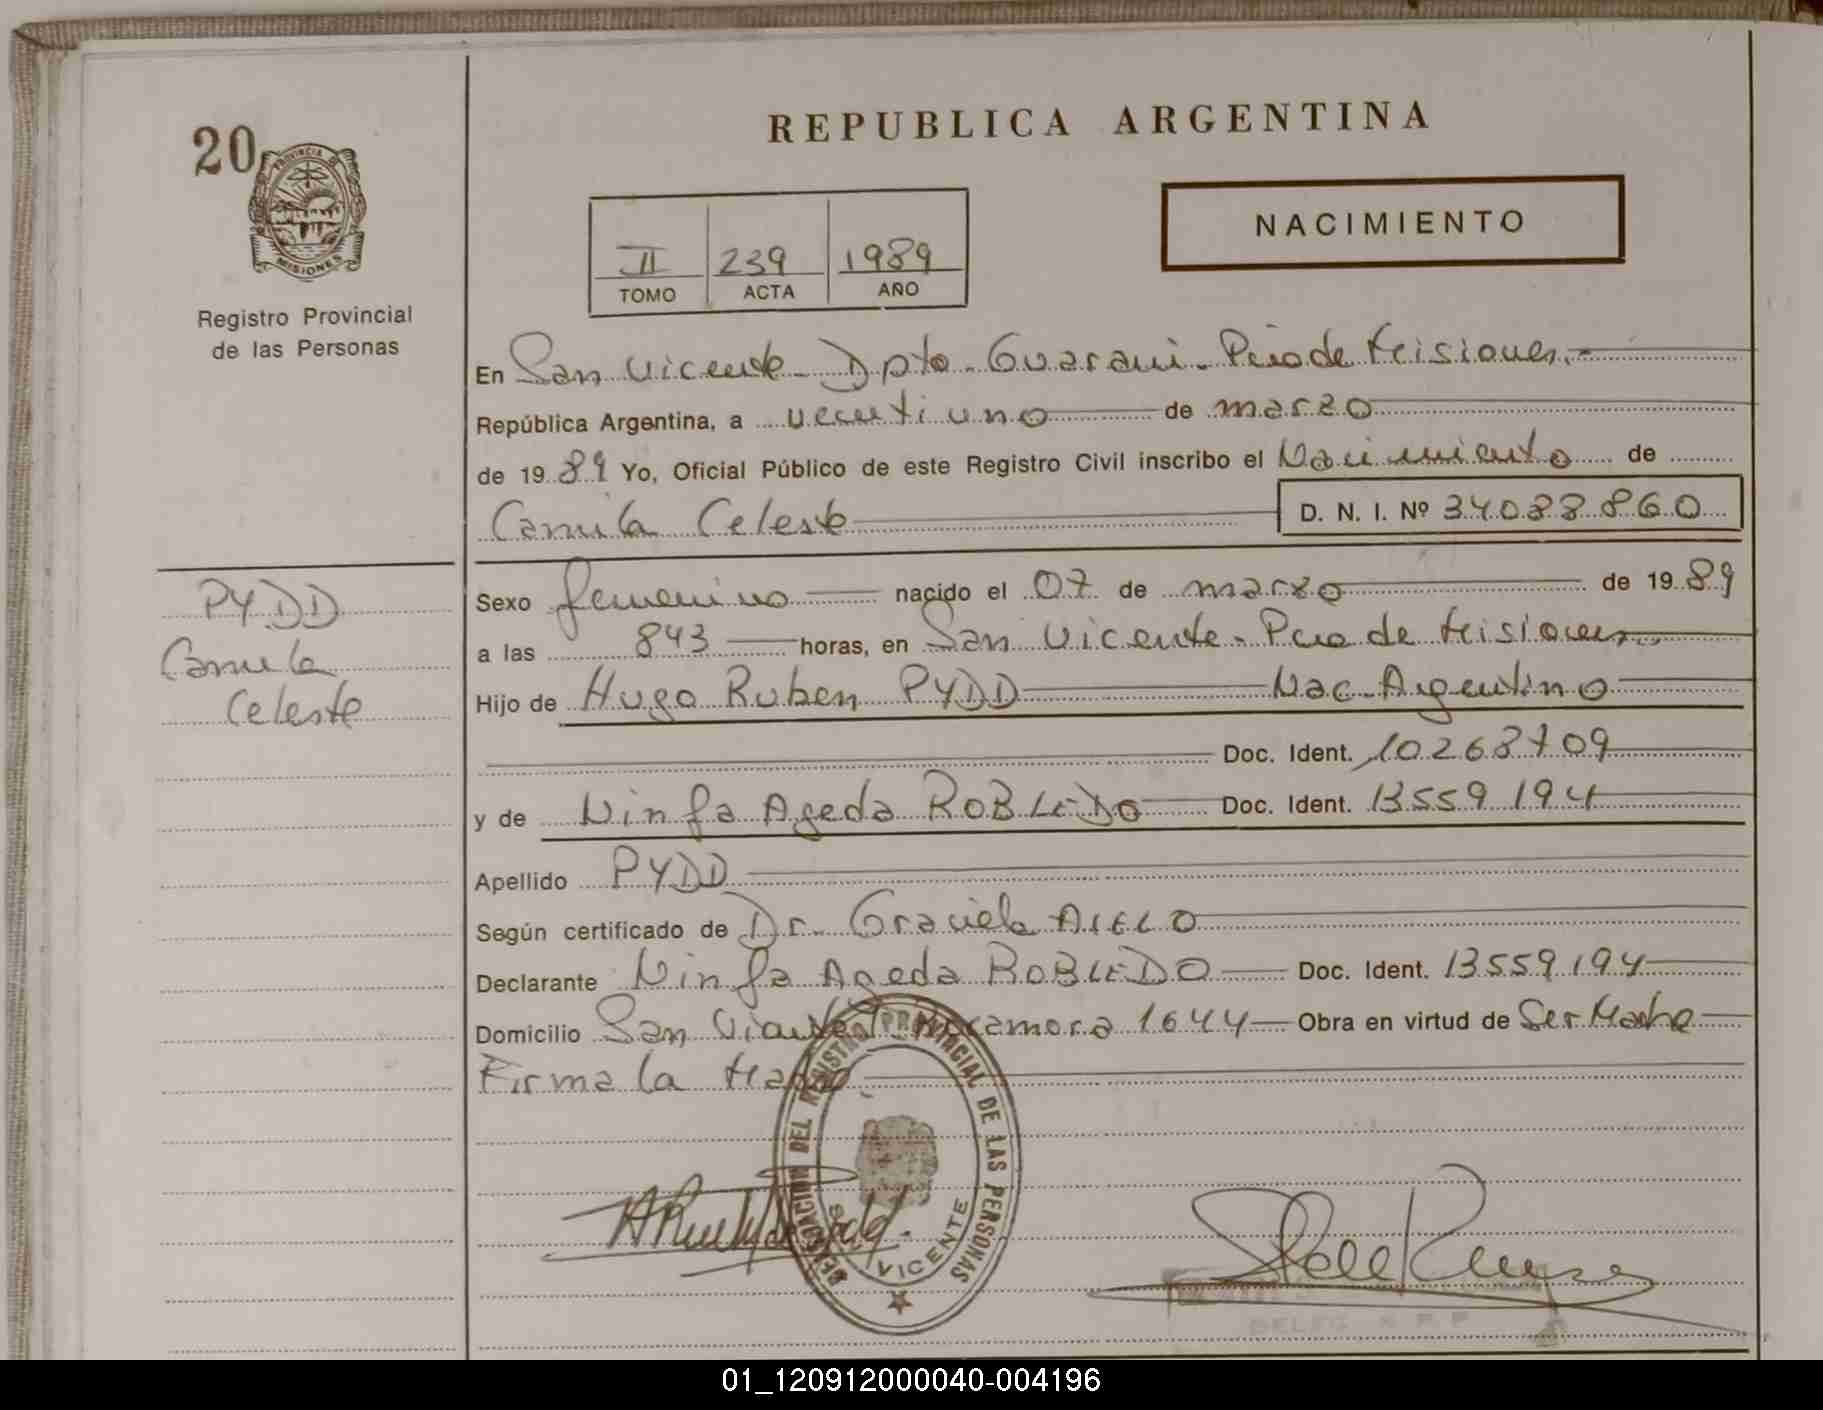 REPUBLICA ARGENTINA
20
PROVINCIA DE
MISIONES
Registro Provincial
de las Personas
NACIMIENTO
II 239 1989
TOMO ACTA AÑO
En San Vicente - Dpto. Guarani - Pcia de Misiones.-
República Argentina, a veintiuno de marzo
de 1989 Yo, Oficial Público de este Registro Civil inscribo el Nacimiento de
Camila Celeste D. N. I. Nº 34.088.860
PYDD
Camila
Celeste
Sexo femenino nacido el 07 de marzo de 1989
a las 843 horas, en San Vicente - Pcia de Misiones.
Hijo de Hugo Ruben PYDD Nac. Argentino
Doc. Ident. 10268709
y de Ninfa Ageda ROBLEDO Doc. Ident. 13559194
Apellido PYDD
Según certificado de Dr. Graciela AIELO
Declarante Ninfa Ageda ROBLEDO Doc. Ident. 13559194
Domicilio San Vicente 1644 Obra en virtud de Ser Madre
Firma la Madre
DELEGACION DEL REGISTRO PROVINCIAL DE LAS PERSONAS
SAN VICENTE
DELEG. R. P. P.
01_120912000040-004196